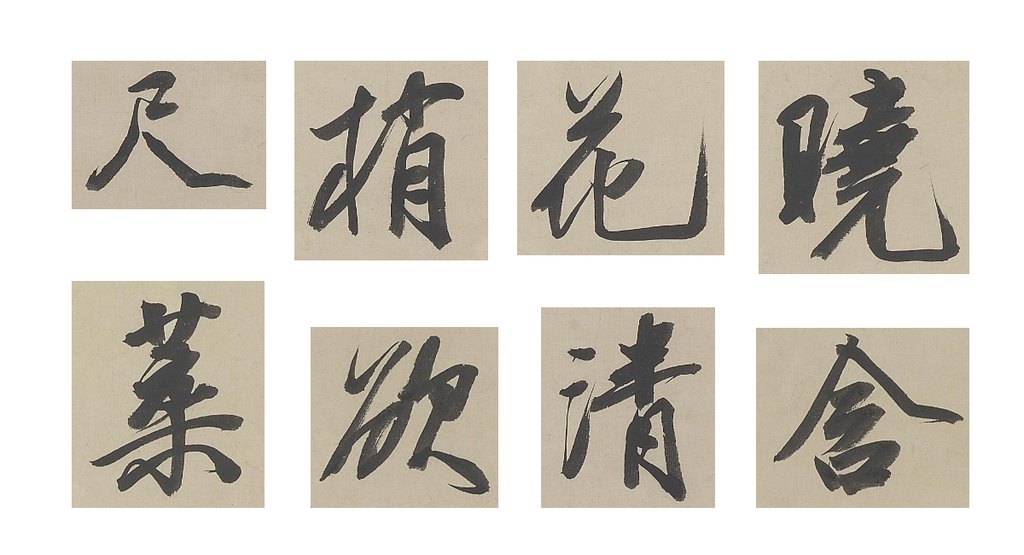 尺梢花曉
菜欲清含